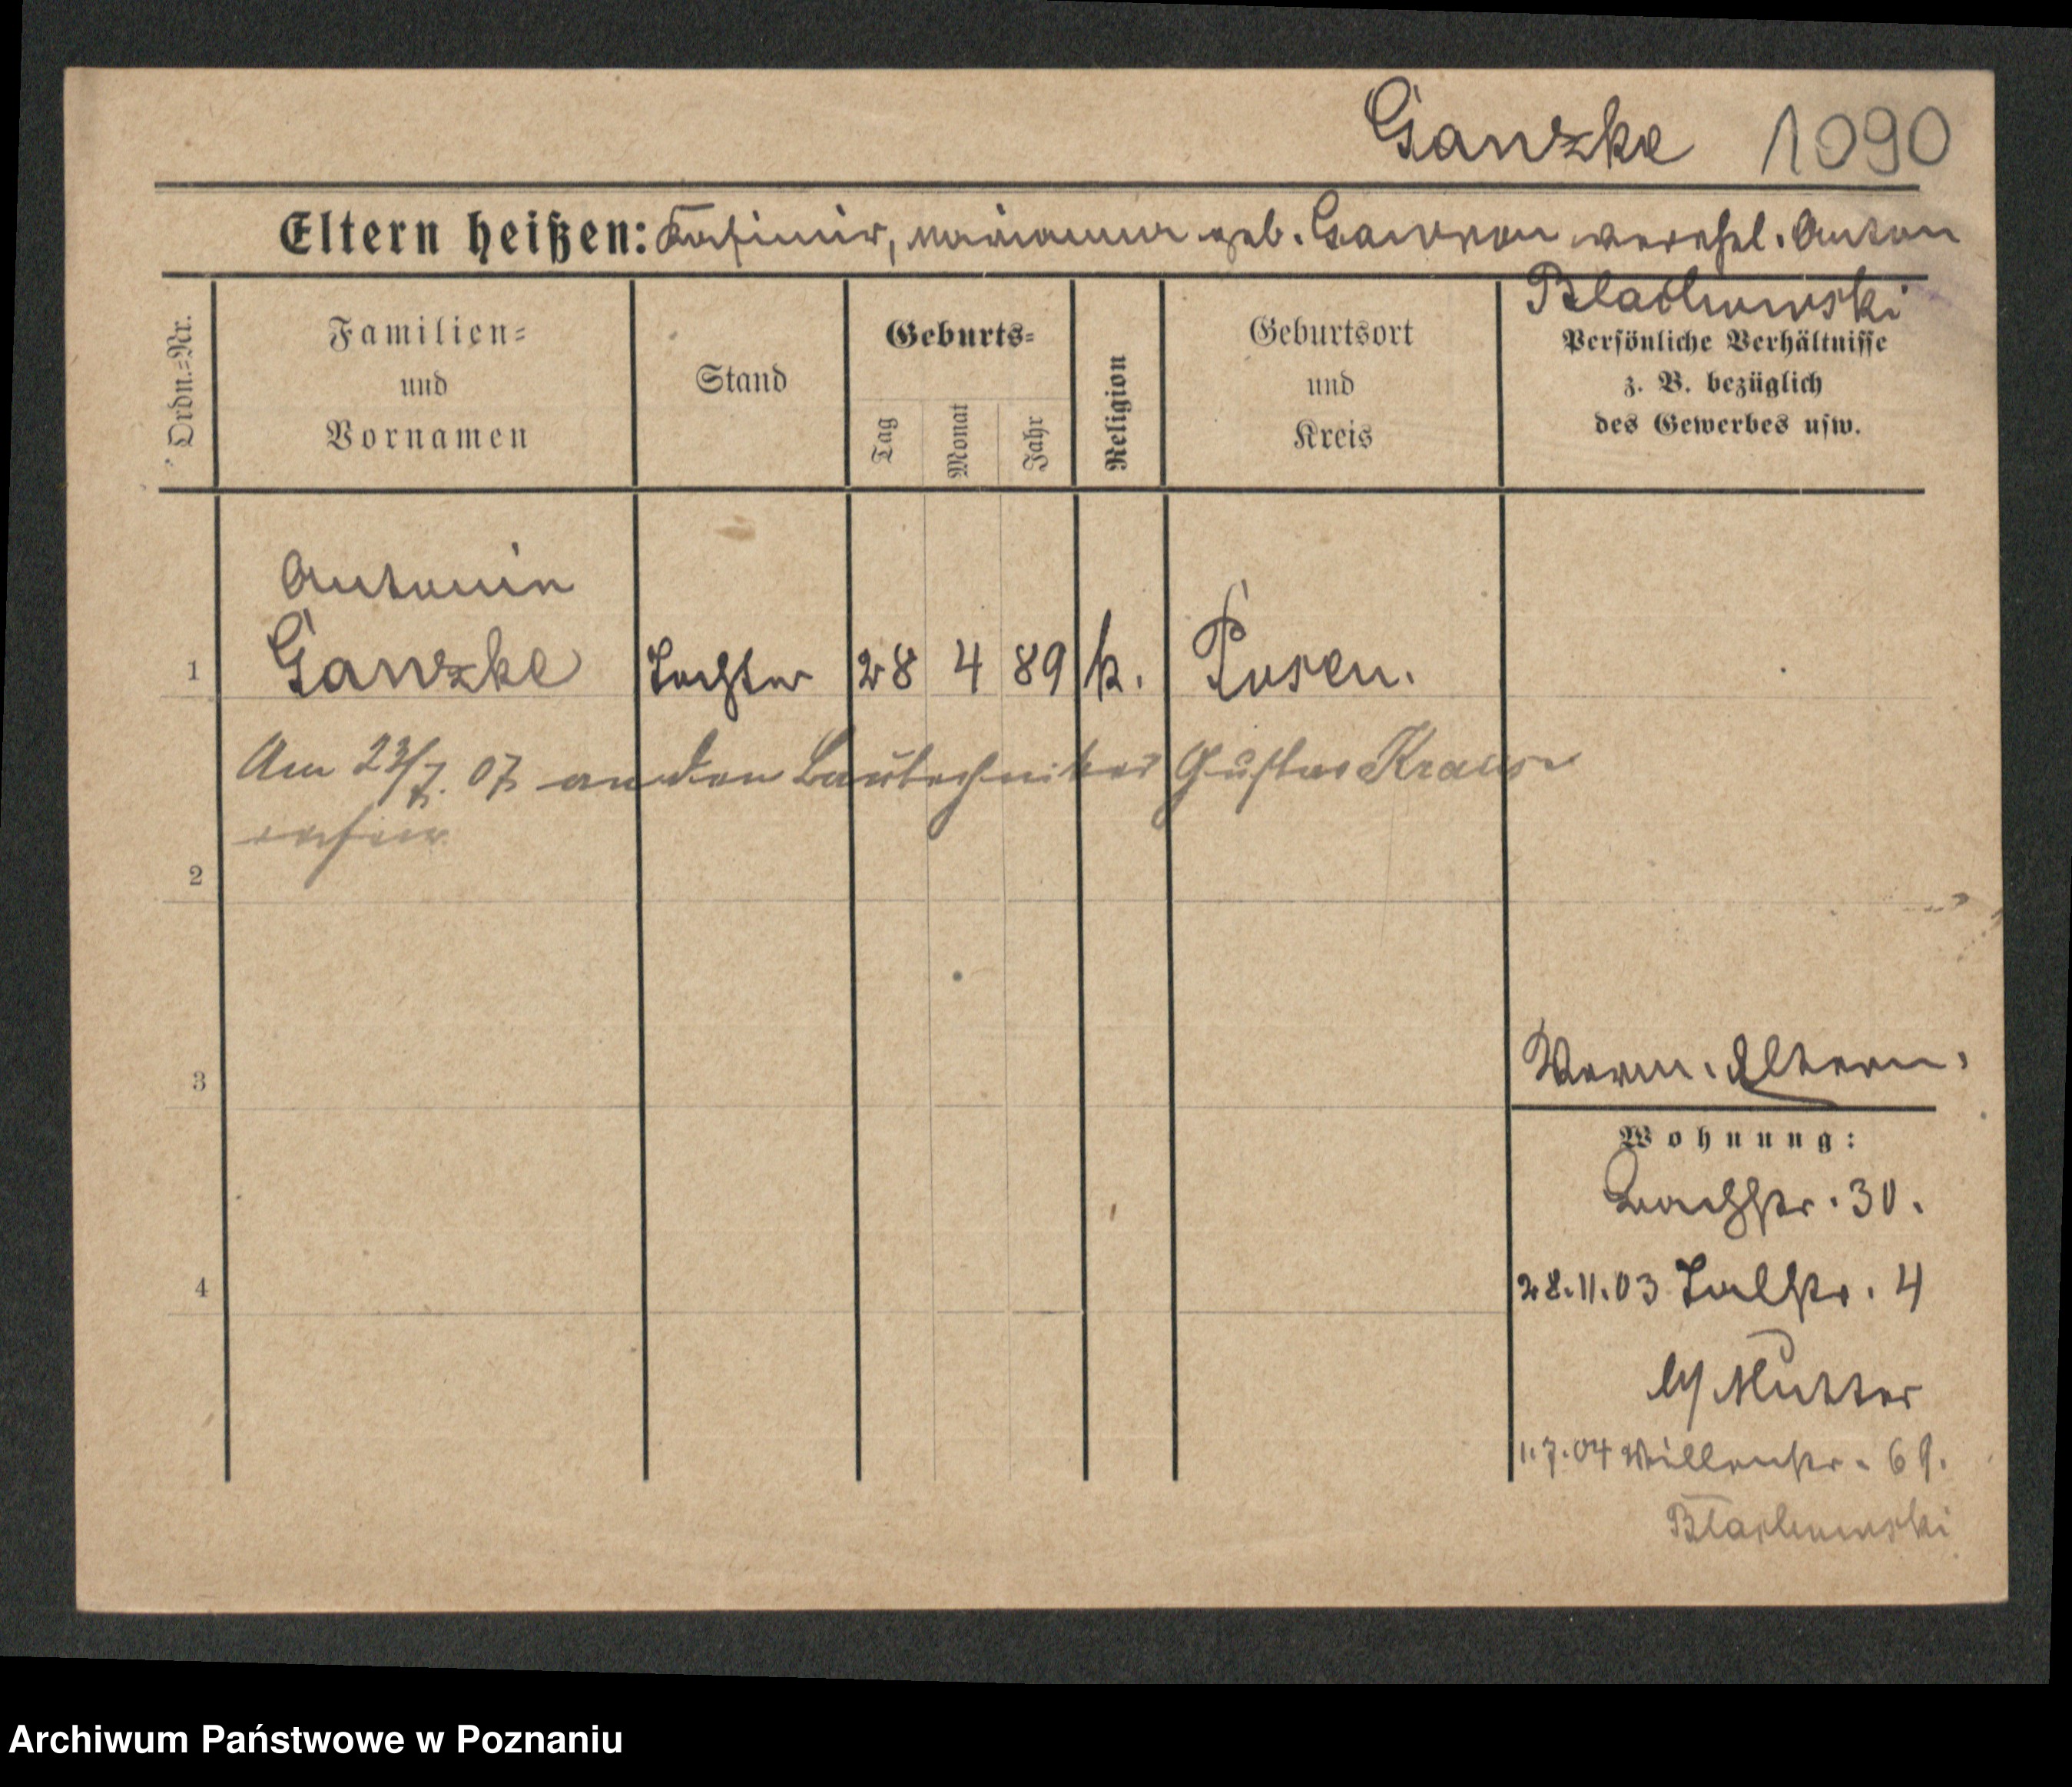 Ganzke 1090
Eltern heißen: Kasimir, Marianna geb. Gawron verehel. Anton
Blachowski
Ordn.=Nr.
Familien=
und
Vornamen
Stand
Geburts=
Tag
Monat
Jahr
Religion
Geburtsort
und
Kreis
Persönliche Verhältnisse
z. B. bezüglich
des Gewerbes usw.
Antonin
1 Ganzke Tochter 28 4 89 k. Posen.
Am 23/7. 07 an den Bautechniker Gustav Krause
2
3
Verm. Eltern.
Wohnung:
Bachstr. 30.
4
28.11.03 Talstr. 4
b/ Mutter
1.7.04 Willenstr. 69.
Blachowski
Archiwum Państwowe w Poznaniu